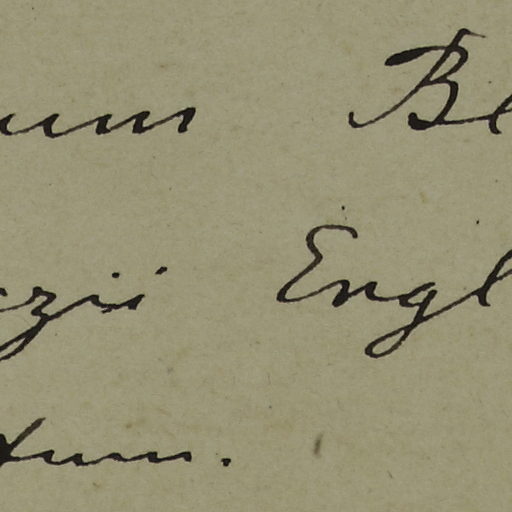 um Bl
zii Engl
tum.